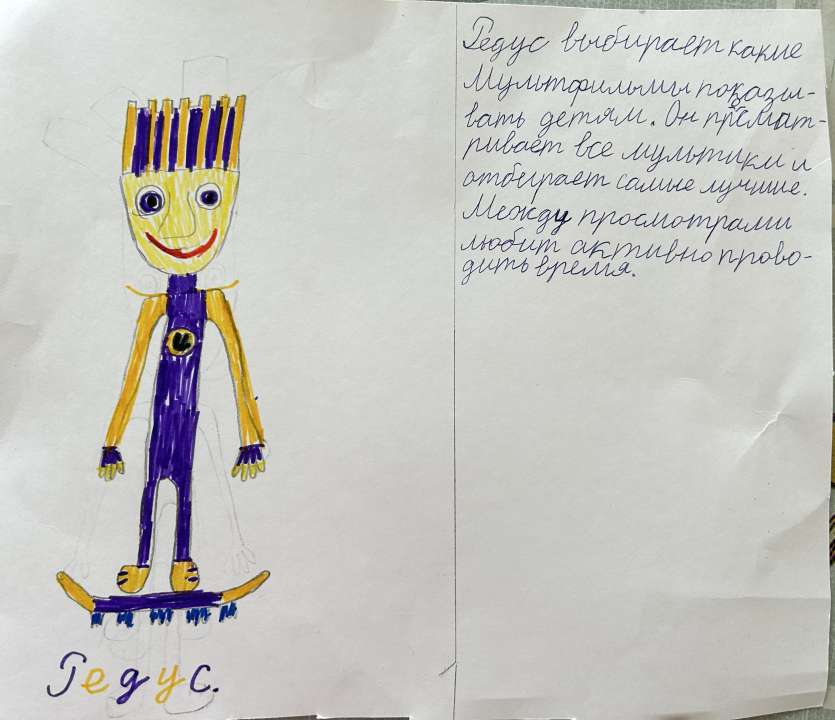 Гедус выбирает какие
мультфильмы показы-
вать детям. Он прсмат-
ривает все мультики и
отбирает самые лучшие.
Между просмотрами
любит активно прово-
дить время.
Гедус.